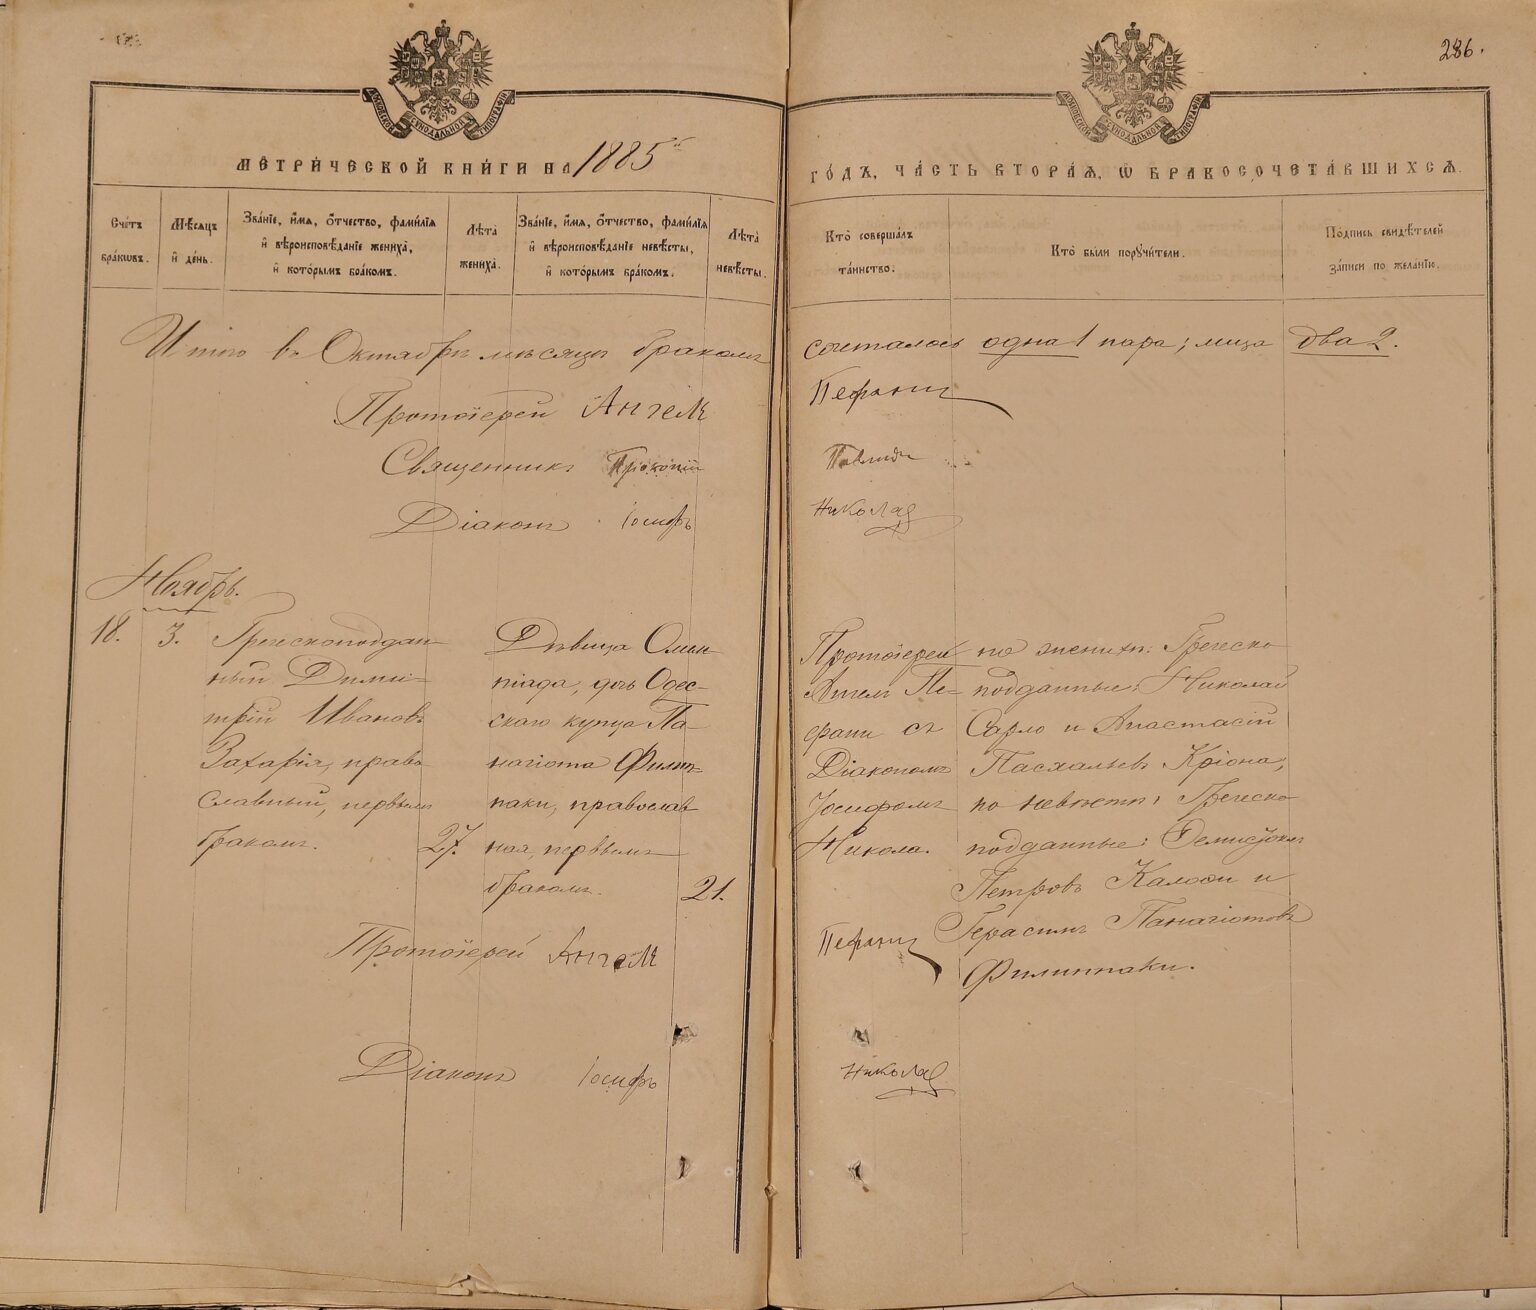 286.
МОСКОВСКОЙ СѴНОДАЛЬНОЙ ТИПОГРАФІИ
МОСКОВСКОЙ СѴНОДАЛЬНОЙ ТИПОГРАФІИ
МЕТРИ́ЧЕСКОЙ КНИ́ГИ НА 1885й ГО́ДЪ, ЧА́СТЬ ВТОРА́Я, Ѡ БРАКОСОЧЕТА́ВШИХСЯ.
Сче́тъ бра́кѡвъ.
Мѣ́сяцъ и҆ де́нь.
Зва́нїе, и҆́мя, ѻ҆́тчество, фами́лїя и҆ вѣроисповѣ́данїе жениха̀, и҆ кото́рымъ бра́комъ.
Лѣ́та жениха̀.
Зва́нїе, и҆́мя, ѻ҆́тчество, фами́лїя и҆ вѣроисповѣ́данїе невѣ́сты, и҆ кото́рымъ бра́комъ.
Лѣ́та невѣ́сты.
Кто̀ соверша́лъ та́инство.
Кто̀ бы́ли порꙋчи́тели.
По́дпись свидѣ́телей за́писи по жела́нїю.
Итого въ Октябрѣ мѣсяцѣ бракомъ сочеталось одна 1 пара; лица два 2.
Протоіерей Ангелъ Перани
Священникъ Прокопій Павлиди
Діаконъ Іосифъ Никола
Ноябрь.
18. 3.
Греческоподдан
ный Дими-
трій Ивановъ
Захарія, право
славный, первымъ
бракомъ. 27.
Дѣвица Олим
піада, дочь Одес-
скаго купца Па-
нагіота Филип
паки, православ
ная, первымъ
бракомъ. 21.
Протоіерей
Ангел Пе-
фани съ
Діакономъ
Іосифомъ
Никола.
по женихѣ: Греческо
подданные: Николай
Сарло и Анастасій
Пасхальевъ Кріона,
по невѣстѣ: Греческо
подданные:
Петровъ и
Герасимъ Панагіотовъ
Филиппаки.
Протоіерей Ангелъ Перани
Діаконъ Іосифъ Никола